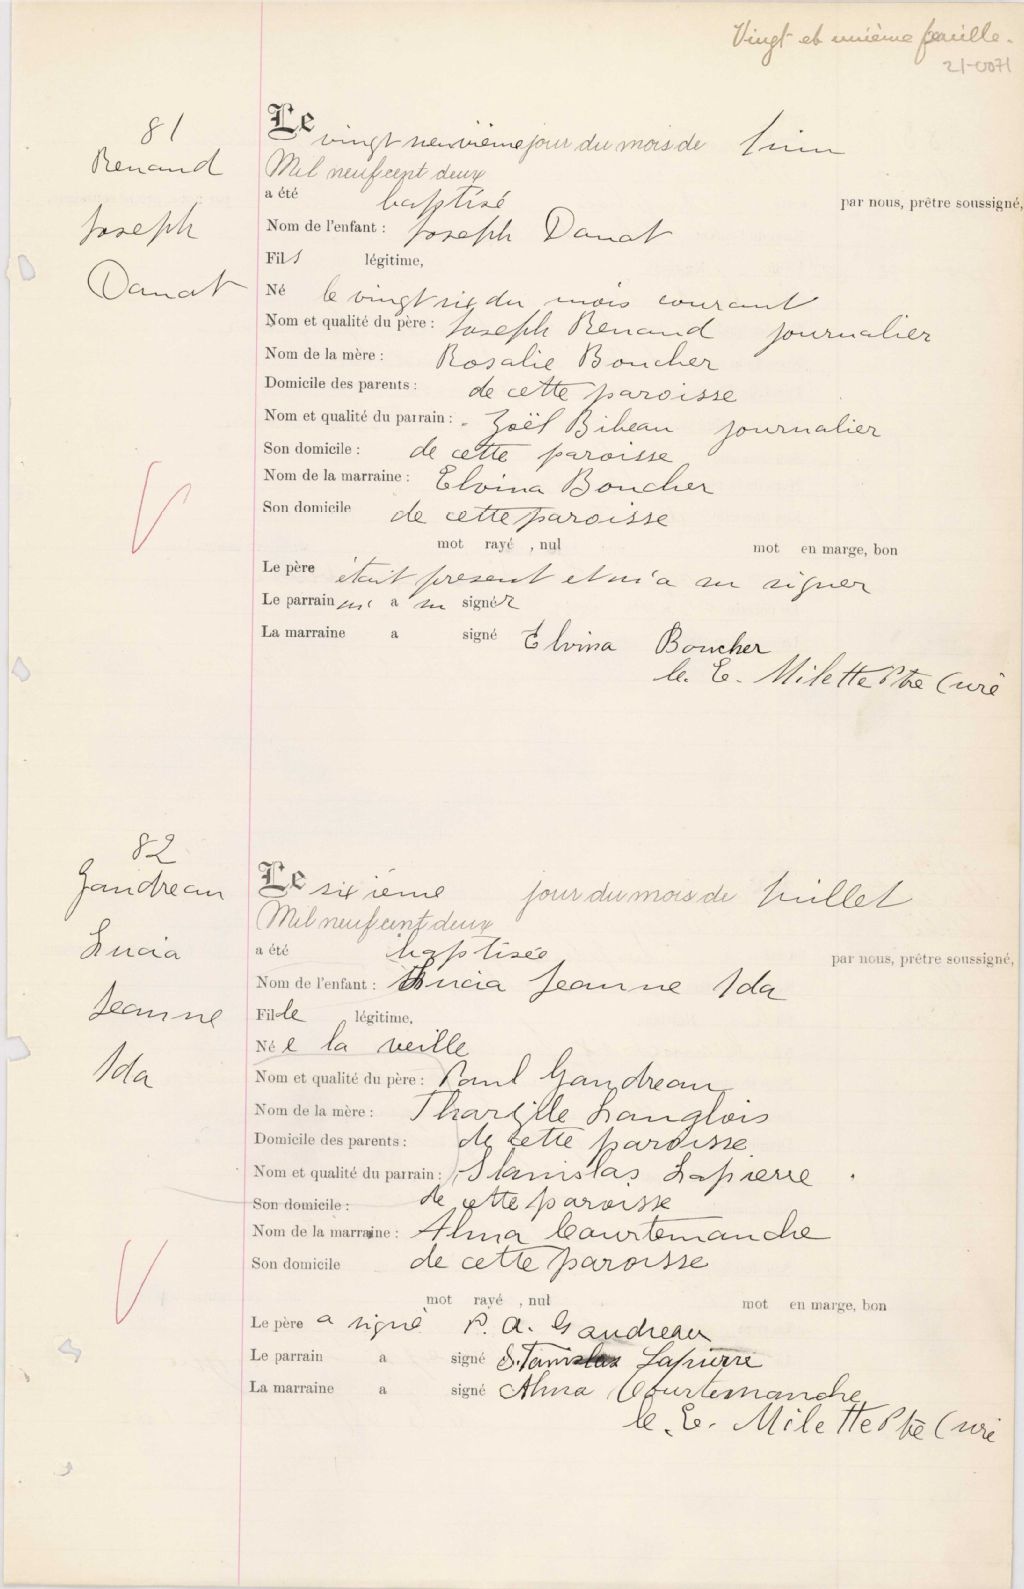 Vingt et unième feuille.
21-0071
81
Renaud
Joseph
Donat
Le vingt neuvième jour du mois de Juin
Mil neuf cent deux
a été baptisé par nous, prêtre soussigné,
Nom de l'enfant : Joseph Donat
Fils légitime,
Né le vingt six du mois courant
Nom et qualité du père : Joseph Renaud journalier
Nom de la mère : Rosalie Boucher
Domicile des parents : de cette paroisse
Nom et qualité du parrain : Zoël Bibeau journalier
Son domicile : de cette paroisse
Nom de la marraine : Elvina Boucher
Son domicile de cette paroisse
mot rayé , nul mot en marge, bon
Le père était present et n'a su signer
Le parrain ni a su signér
La marraine a signé Elvina Boucher
C. E. Milette Ptre Curé
82
Gaudreau
Lucia
Jeanne
Ida
Le sixième jour du mois de Juillet
Mil neuf cent deux
a été baptisée par nous, prêtre soussigné,
Nom de l'enfant : Lucia Jeanne Ida
Fille légitime,
Née la veille
Nom et qualité du père : Paul Gaudreau
Nom de la mère : Tharzille Langlois
Domicile des parents : de cette paroisse
Nom et qualité du parrain : Stanislas Lapierre
Son domicile : de cette paroisse
Nom de la marraine : Alma Courtemanche
Son domicile de cette paroisse
mot rayé , nul mot en marge, bon
Le père a signé P. A. Gaudreau
Le parrain a signé Stanislas Lapierre
La marraine a signé Alma Courtemanche
C. E. Milette Ptre Curé